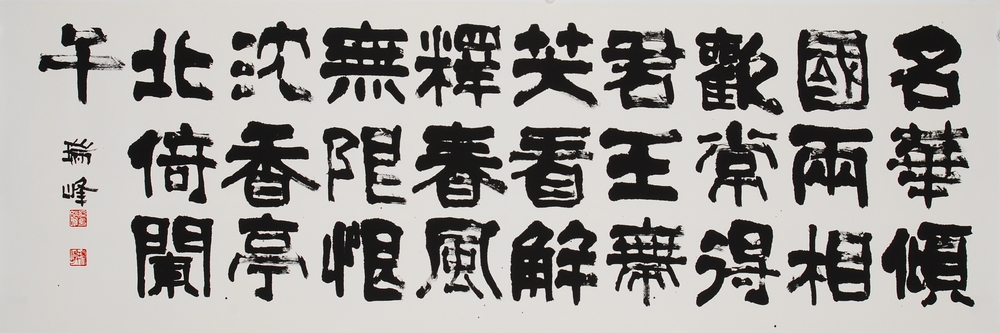 名華傾
國兩相
歡常得
君王帶
笑看解
釋春風
無限恨
沈香亭
北倚闌
干
峰